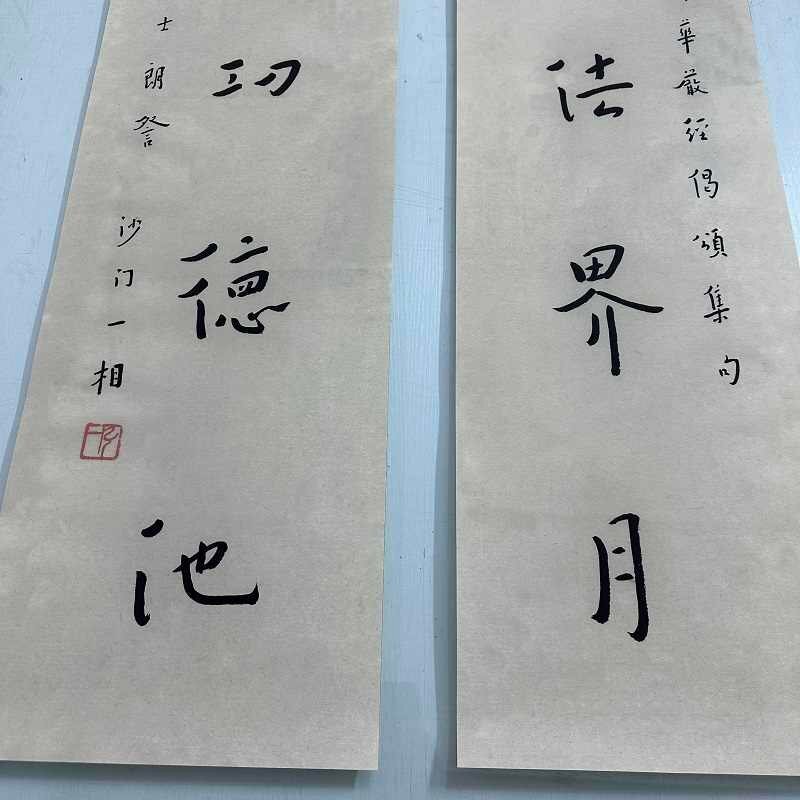 華嚴經偈頌集句
法界月
功德池
士朗詧
沙门一相